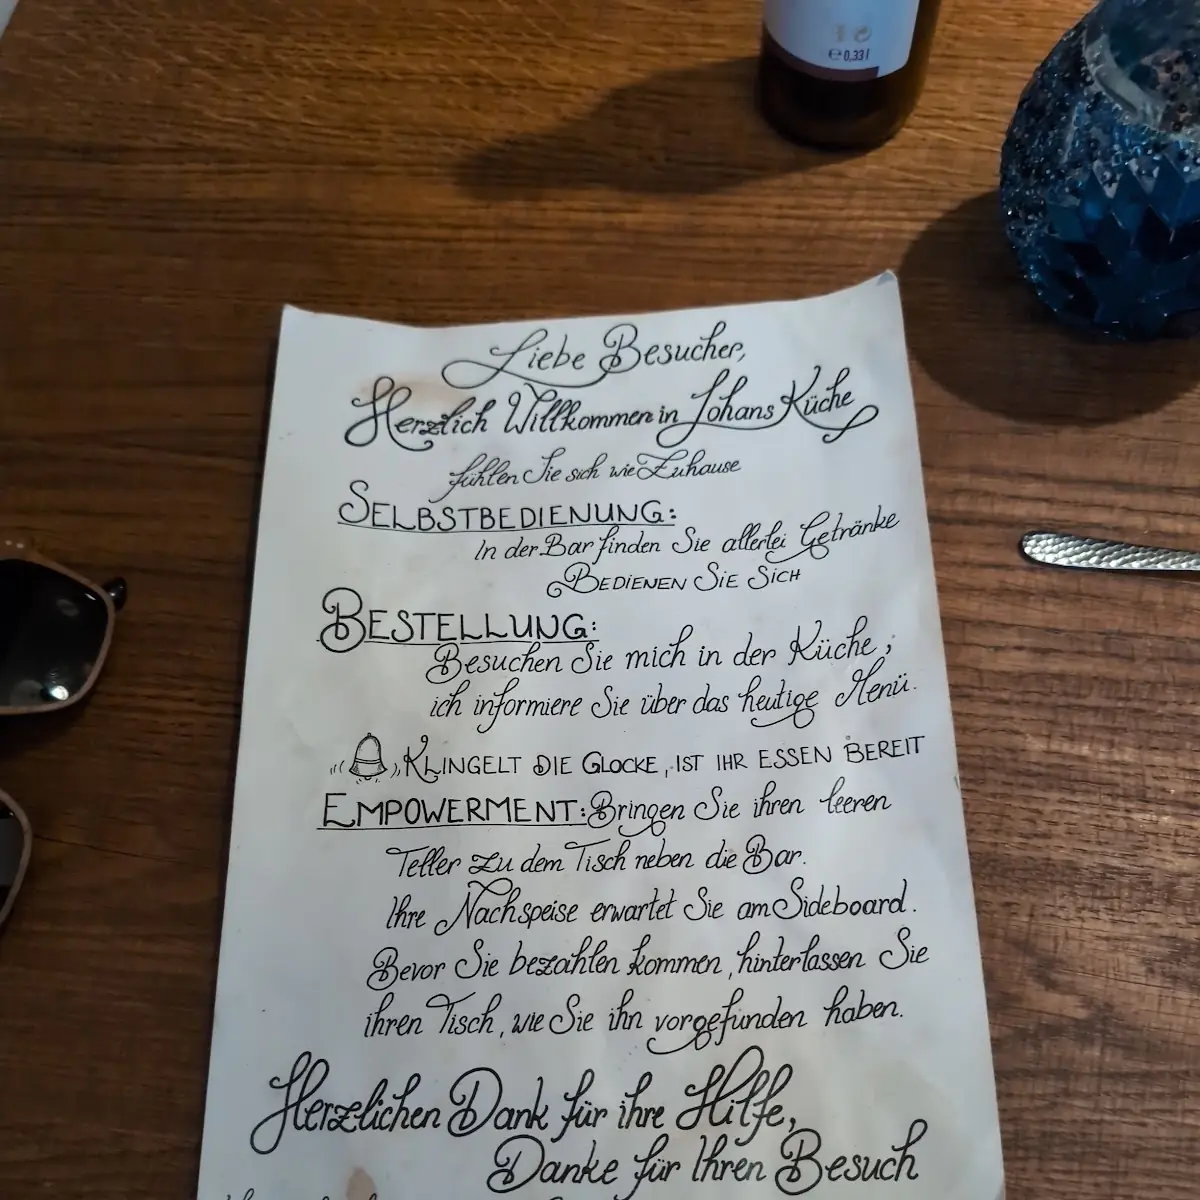 ℮ 0,33 l
Liebe Besucher,
Herzlich Willkommen in Johans Küche
fühlen Sie sich wie Zuhause
SELBSTBEDIENUNG:
In der Bar finden Sie allerlei Getränke
BEDIENEN SIE SICH
BESTELLUNG:
Besuchen Sie mich in der Küche;
ich informiere Sie über das heutige Menü.
KLINGELT DIE GLOCKE, IST IHR ESSEN BEREIT
EMPOWERMENT: Bringen Sie ihren leeren
Teller zu dem Tisch neben die Bar.
Ihre Nachspeise erwartet Sie am Sideboard.
Bevor Sie bezahlen kommen, hinterlassen Sie
ihren Tisch, wie Sie ihn vorgefunden haben.
Herzlichen Dank für ihre Hilfe,
Danke für Ihren Besuch